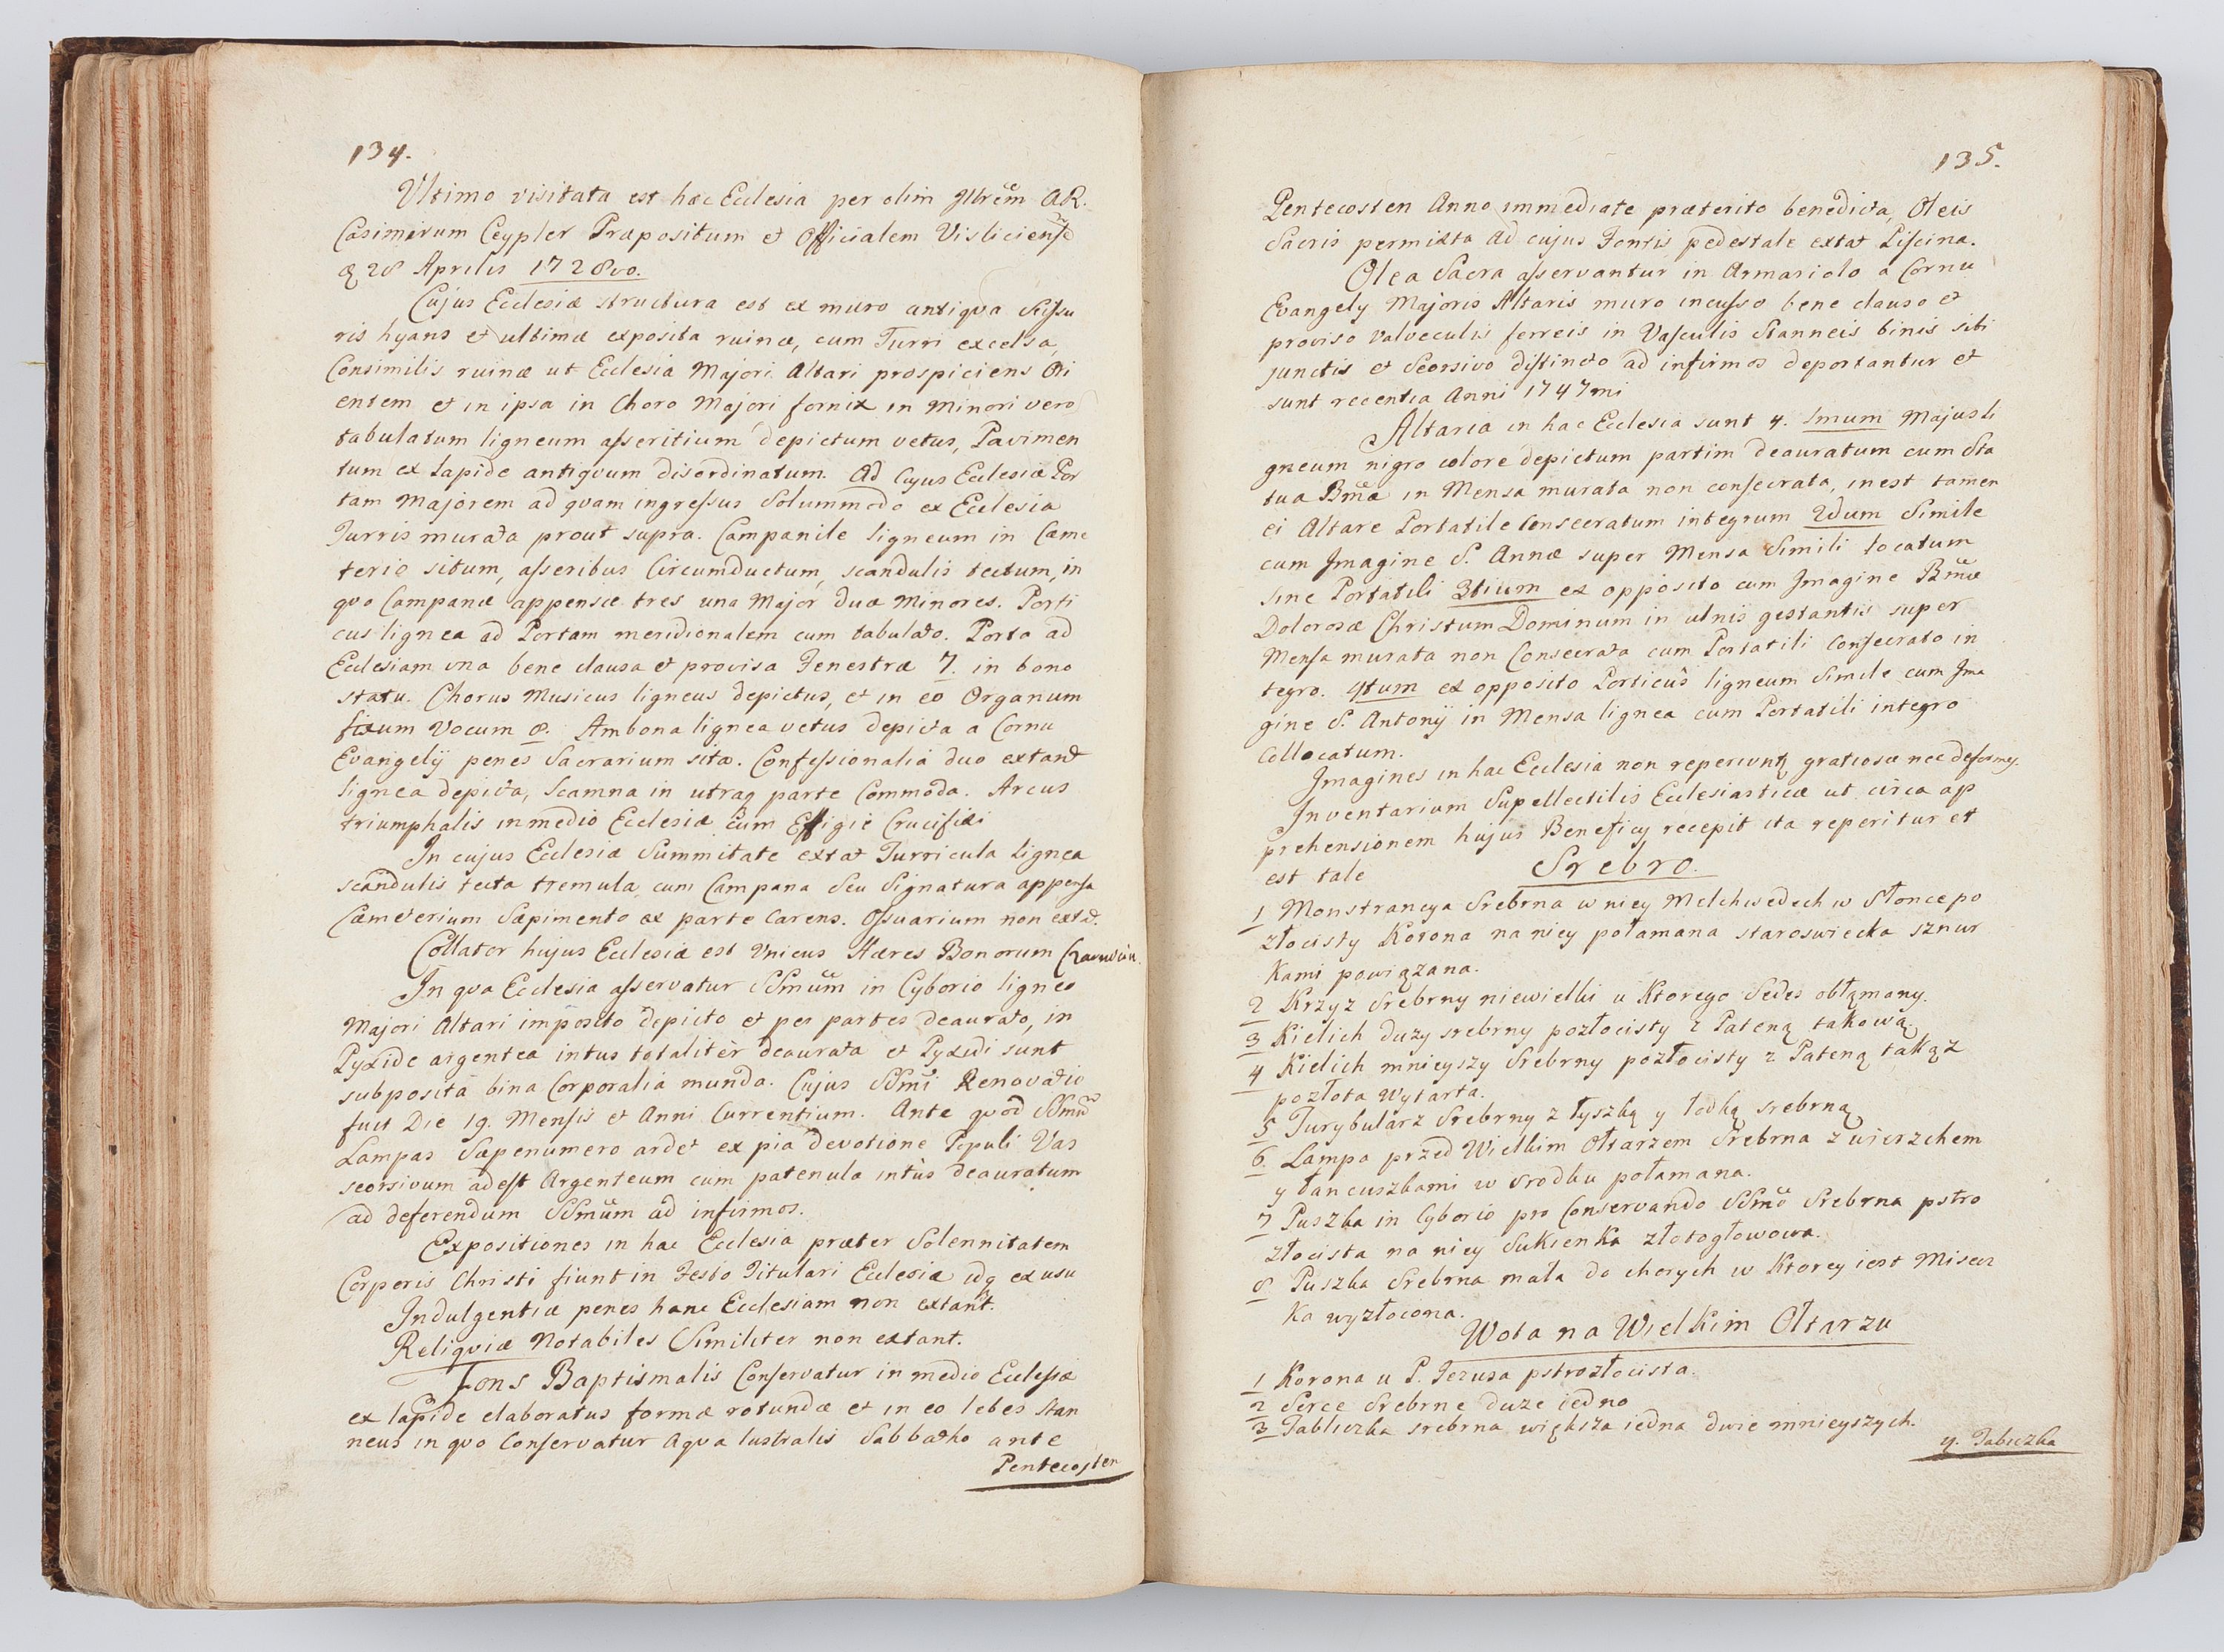 134.
Ultimo visitata est hæc Ecclesia per olim Illrẽm A.R.
Casimirum Ceypler Præpositum et Officialem Visliciensẽ
28 Aprilis 1728vo.
Cujus Ecclesiæ structura est ex muro antiqva scissu
ris hyans et ultimæ exposita ruinæ, cum Turri excelsa,
Consimilis ruinæ ut Ecclesia Majori Altari prospiciens Ori
entem et in ipsa in Choro Majori fornix in Minori vero
tabulatum ligneum asseritium depictum vetus, Pavimen
tum ex Lapide antiqvum disordinatum. Ad Cujus Ecclesiæ Por
tam Majorem ad qvam ingressus Solummodo ex Ecclesia
Turris murata prout supra. Campanile ligneum in Cæme
terio situm, asseribus Circumductum, scandulis tectum, in
qvo Campanæ appensæ tres una Major duæ Minores. Porti
cus lignea ad Portam meridionalem cum tabulato. Porta ad
Ecclesiam una bene clausa et provisa Fenestræ 7. in bono
statu. Chorus Musicus ligneus depictus, et in eo Organum
fixum Vocum 8. Ambona lignea vetus depicta a Cornu
Evangelÿ penes Sacrarium sita. Confessionalia duo extant
lignea depicta, Scamna in utraq parte Commoda. Arcus
triumphalis in medio Ecclesiæ cum Effigie Crucifixi
In cujus Ecclesiæ Summitate extat Turricula Lignea
scandulis tecta tremula cum Campana Seu Signatura appensa
Cæmeterium Sæpimento ex parte Carens. Ossuarium non extat.
Collator hujus Ecclesiæ est Unicus Hæres Bonorum
In qva Ecclesia asservatur SSmũm in Cyborio ligneo
Majori Altari imposito depicto et per partes deaurato, in
Pyxide argentea intus totalitèr deaurata et Pyxidi sunt
subposita bina Corporalia munda. Cujus SSmi Renovatio
fuit Die 19. Mensis et Anni Currentium. Ante qvod SSmũ
Lampas Sæpenumero ardet ex pia devotione Populi Vas
seorsivum adest Argenteum cum patenula intùs deauratum
ad deferendum SSmũm ad infirmos.
Expositiones in hac Ecclesia præter Solennitatem
Corporis Christi fiunt in Festo Titulari Ecclesiæ idq ex usu
Indulgentiæ penes hanc Ecclesiam non extant.
Reliqviæ Notabiles Similiter non extant.
Fons Baptismalis Conservatur in medio Ecclesiæ
ex lapide elaboratus formæ rotundæ et in eo lebes stan
neus in qvo Conservatur Aqva lustralis Sabbatho ante
Pentecosten
135.
Pentecosten Anno immediate præterito benedicta, Oleis
Sacris permixta Ad cujus Fontis pedestale extat Piscina.
Olea Sacra asservantur in Armariolo a Cornu
Evangely Majoris Altaris muro incusso bene clauso et
proviso Valveculis ferreis in Vasculis Stanneis binis sibi
junctis et Seorsivo distincto ad infirmos deportantur et
sunt recentia Anni 1747mi
Altaria in hac Ecclesia sunt 4. 1mum Majus li
gneum nigro colore depictum partim deauratum cum Sta
tua Bmæ in Mensa murata non consecrata, inest tamen
ei Altare Portatile Consecratum integrum 2dum Simile
cum Imagine S. Annæ super Mensa Simili locatum
sine Portatili 3tium ex opposito cum Imagine Bmæ
Dolorosæ Christum Dominum in ulnis gestantis super
Mensa murata non Consecrata cum Portatili Consecrato in
tegro. 4tum ex opposito Porticûs ligneum Simile cum Ima
gine S. Antonij in Mensa lignea cum Portatili integro
Collocatum.
Imagines in hac Ecclesia non reperiunt gratiosæ nec deformes.
Inventarium Supellectilis Ecclesiasticæ ut circa ap
prehensionem hujus Beneficij recepit ita reperitur et
est tale Srebro.
1 Monstrancya Srebrna w niey Melchwedech w Słońce po
złocisty Korona na niey połamana staroswiecka sznur
kami powiązana.
2 Krzyz Srebrny niewielki u Ktorego Sedes obłamany.
3 Kielich duzy srebrny pozłocisty z Pateną takową.
4 Kielich mnieyszy Srebrny pozłocisty z Pateną takąz
pozłota wytarta.
5 Turybularz Srebrny z łyszką y łodką srebrną
6. Lampa przed Wielkim Ołtarzem Srebrna z wierzchem
y łancuszkami w srodku połamana.
7 Puszka in Cyborio pro Conservando SSmo Srebrna pstro
złocista na niey Sukienka złotogłowowa.
8 Puszka Srebrna mała do chorych w Ktorey iest Misecz
ka wyzłocona.
Wota na Wielkim Ołtarzu
1 Korona u P. Jezusa pstrozłocista.
2 Serce Srebrne duze iedno
3 Tabliczka srebrna większa iedna dwie mnieyszych.
4. Tabliczka